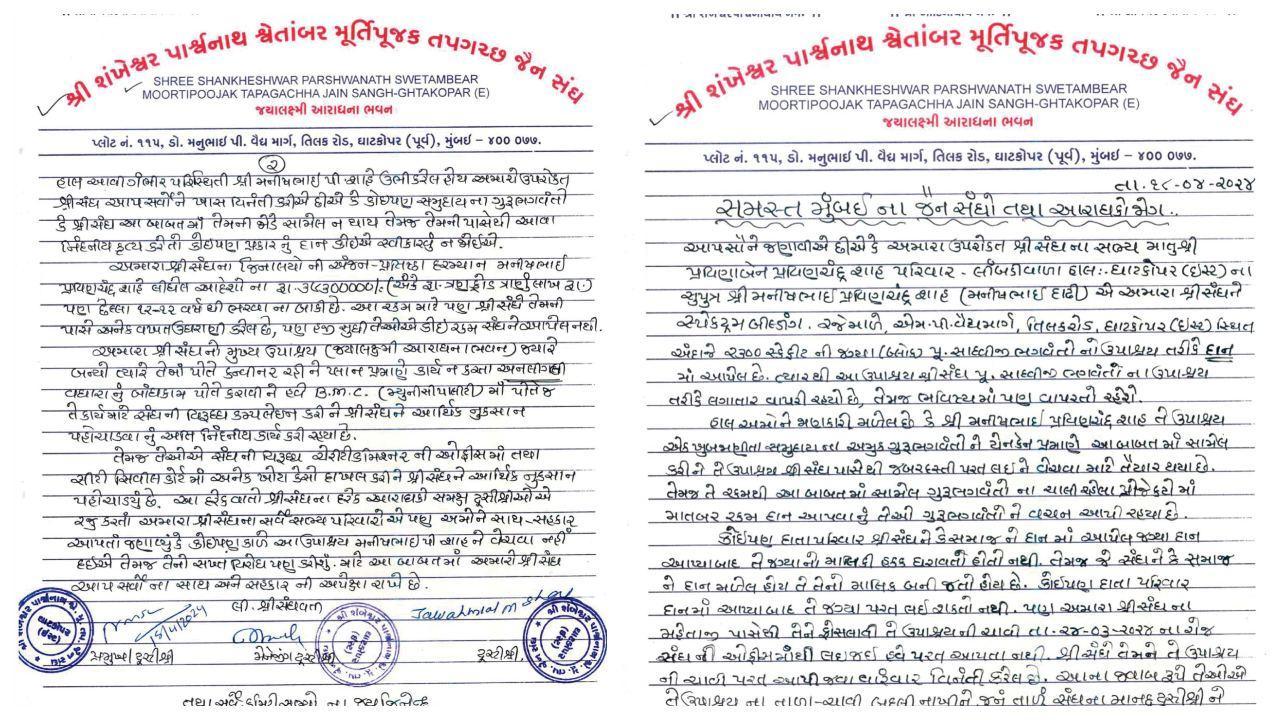 શ્રી શંખેશ્વર પાર્શ્વનાથ શ્વેતાંબર મૂર્તિપૂજક તપગચ્છ જૈન સંઘ
SHREE SHANKHESHWAR PARSHWANATH SWETAMBEAR
MOORTIPOOJAK TAPAGACHHA JAIN SANGH-GHTAKOPAR (E)
જયાલક્ષ્મી આરાધના ભવન
પ્લોટ નં. ૧૧૫, ડો. મનુભાઈ પી. વૈદ્ય માર્ગ, તિલક રોડ, ઘાટકોપર (પૂર્વ), મુંબઈ – ૪૦૦ ૦૭૭.
૨
હાલ આવી ગંભીર પરિસ્થિતી શ્રી મનીષભાઈ પી શાહે ઉભી કરેલ હોય અમારો ઉપરોકત
શ્રીસંઘ આપ સર્વોને ખાસ વિનંતી કરીએ છીએ કે કોઈપણ સમુદાયના ગુરૂભગવંતો
કે શ્રીસંઘ આ બાબતમાં તેમની જોડે સામેલ ન થાય તેમજ તેમની પાસેથી આવા
નિંદનીય કૃત્ય કરી તો કોઈપણ પ્રકારનું દાન કોઈએ સ્વીકારવું ન જોઈએ.
અમારા શ્રીસંઘના જિનાલયોની અંજન-પ્રતિષ્ઠા દરમ્યાન મનીષભાઈ
પ્રવિણચંદ્ર શાહે લીધેલ આદેશોના રૂા. (અંકે રૂા. ત્રણ કરોડ ત્રાણું લાખ રૂા.)
પણ છેલ્લા ૧૨-૧૨ વર્ષથી ભરવાના બાકી છે. આ રકમ માટે પણ શ્રીસંઘે તેમની
પાસે અનેક વખત ઉઘરાણી કરેલ છે, પણ હજી સુધી તેઓએ કોઈ રકમ સંઘને આપેલ નથી.
અમારા શ્રીસંઘનો મુખ્ય ઉપાશ્રય (જયાલક્ષ્મી આરાધના ભવન) જ્યારે
બન્યો ત્યારે તેઓ પોતે કન્વીનર રહીને પ્લાન પ્રમાણે કાર્ય ન કરતા અનલીગલી
વધારાનું બાંધકામ પોતે કરાવીને હવે B.M.C. (મ્યુનીસીપાલીટી) માં પોતે જ
તે કાર્ય માટે સંઘની વિરૂધ્ધ કમ્પલેઇન્ટ કરીને શ્રીસંઘને આર્થિક નુકસાન
પહોચાડવાનું અતિ નિંદનીય કાર્ય કરી રહ્યા છે.
તેમજ તેઓએ સંઘની વિરૂધ્ધ ચેરીટી કમિશ્નર ની ઓફીસમાં તથા
સીટી સિવીલ કોર્ટમાં અનેક ખોટા કેસો દાખલ કરીને શ્રીસંઘને આર્થિક નુકસાન
પહોંચાડ્યું છે. આ દરેક વાતો શ્રીસંઘના દરેક આરાધકો સમક્ષ ટ્રસ્ટીશ્રીઓએ
રજુ કરતાં અમારા શ્રીસંઘના સર્વે સભ્ય પરિવારોએ પણ અમોને સાથ-સહકાર
આપતાં જણાવ્યું કે કોઈપણ કાળે આ ઉપાશ્રય મનીષભાઈ પી શાહને વેચવા નહીં
દઈએ તેમજ તેનો સખ્ત વિરોધ પણ કરીશું. માટે આ બાબતમાં અમારો શ્રીસંઘ
આપ સર્વોના સાથ અને સહકારની અપેક્ષા રાખે છે.
લી. શ્રીસંઘવતી
15/4/2024
Jawahmal M Shah
પ્રમુખ ટ્રસ્ટીશ્રી
મેનેજીંગ ટ્રસ્ટીશ્રી
ટ્રસ્ટીશ્રી
તથા સર્વે કમિટી સભ્યો ના જયજીનેન્દ્ર
શ્રી શંખેશ્વર પાર્શ્વનાથ શ્વેતાંબર મૂર્તિપૂજક તપગચ્છ જૈન સંઘ
SHREE SHANKHESHWAR PARSHWANATH SWETAMBEAR
MOORTIPOOJAK TAPAGACHHA JAIN SANGH-GHTAKOPAR (E)
જયાલક્ષ્મી આરાધના ભવન
પ્લોટ નં. ૧૧૫, ડો. મનુભાઈ પી. વૈદ્ય માર્ગ, તિલક રોડ, ઘાટકોપર (પૂર્વ), મુંબઈ – ૪૦૦ ૦૭૭.
તા. ૧૮-૦૪-૨૦૨૪
સમસ્ત મુંબઈ ના જૈન સંઘો તથા આરાધકો જોગ..
આપ સૌને જણાવીએ છીએ કે અમારા ઉપરોકત શ્રીસંઘના સભ્ય માતુશ્રી
પ્રવિણાબેન પ્રવિણચંદ્ર શાહ પરિવાર - લીંબડીવાળા હાલ:- ઘાટકોપર (ઇસ્ટ) ના
સુપુત્ર શ્રી મનીષભાઈ પ્રવિણચંદ્ર શાહ (મનીષભાઈ દાઢી) એ અમારા શ્રીસંઘને
સ્પેકટ્રમ બિલ્ડીંગ, ૨જે માળે, એમ.પી. વૈદ્ય માર્ગ, તિલક રોડ, ઘાટકોપર (ઇસ્ટ) સ્થિત
અંદાજે ૨૩૦૦ સ્કે.ફીટ ની જગ્યા (બ્લોક) પૂ. સાધ્વીજી ભગવંતો નો ઉપાશ્રય તરીકે દાન
માં આપેલ છે. ત્યારથી આ ઉપાશ્રય શ્રીસંઘ પૂ. સાધ્વીજી ભગવંતો ના ઉપાશ્રય
તરીકે લગાતાર વાપરી રહ્યો છે, તેમજ ભવિષ્યમાં પણ વાપરતો રહેશે.
હાલ અમોને જાણકારી મળેલ છે કે શ્રી મનીષભાઈ પ્રવિણચંદ્ર શાહ તે ઉપાશ્રય
એક ખુબ જાણીતા સમુદાય ના અમુક ગુરૂભગવંતોને યેનકેન પ્રમાણે આ બાબતમાં સામેલ
કરીને તે ઉપાશ્રય શ્રીસંઘ પાસેથી જબરદસ્તી પરત લઈને વેચવા માટે તૈયાર થયા છે.
તેમજ તે રકમથી આ બાબતમાં સામેલ ગુરૂભગવંતો ના ચાલી રહેલા પ્રોજેકટોમાં
માતબર રકમ દાન આપવાનું તેઓ ગુરૂભગવંતો ને વચન આપી રહ્યા છે.
કોઈપણ દાતા પરિવાર શ્રીસંઘને કે સમાજ ને દાનમાં આપેલ જગ્યા દાન
આપ્યા બાદ તે જગ્યાનો માલિકી હક્ક ધરાવતો હોતો નથી. તેમજ જે સંઘને કે સમાજ
ને દાન મળેલ હોય તે તેનો માલિક બની જતો હોય છે. કોઈપણ દાતા પરિવાર
દાનમાં આપ્યા બાદ તે જગ્યા પરત લઈ શકતો નથી. પણ અમારા શ્રીસંઘના
મહેતાજી પાસેથી તેને ફોસલાવી તે ઉપાશ્રયની ચાવી તા. ૨૪-૦૩-૨૦૨૪ ના રોજ
સંઘની ઓફીસમાંથી લઈ જઈ હવે પરત આપતા નથી. શ્રીસંઘે તેમને તે ઉપાશ્રય
ની ચાવી પરત આપી જવા વારંવાર વિનંતી કરેલ છે. આના જવાબ રૂપે તેઓએ
તે ઉપાશ્રય ના તાળા-ચાવી બદલી નાખીને જુનું તાળું સંઘના માનદ ટ્રસ્ટીશ્રીને